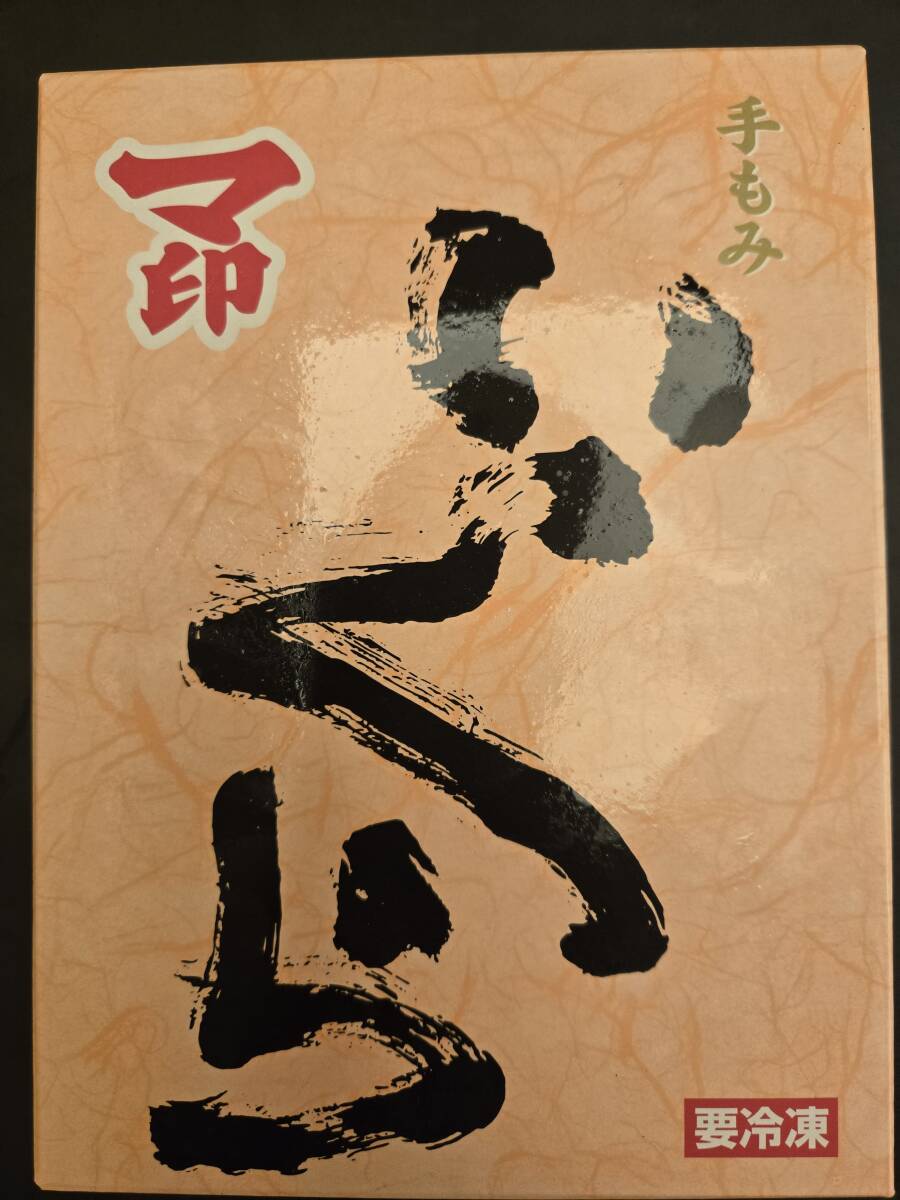 手もみ
いくら
マ印
要冷凍